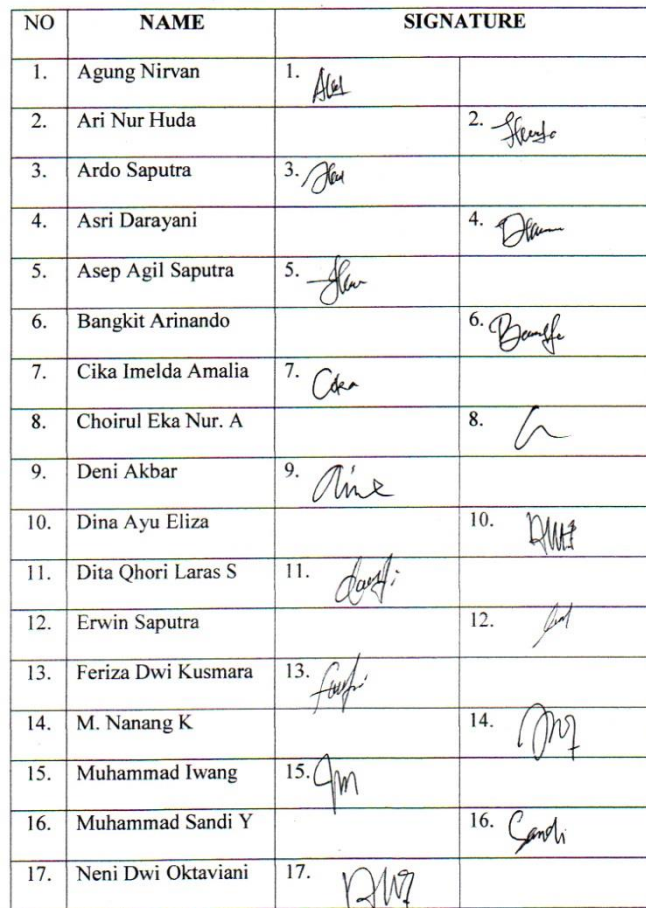 NO NAME SIGNATURE
1. Agung Nirvan 1.
2. Ari Nur Huda 2.
3. Ardo Saputra 3.
4. Asri Darayani 4.
5. Asep Agil Saputra 5.
6. Bangkit Arinando 6.
7. Cika Imelda Amalia 7.
8. Choirul Eka Nur. A 8.
9. Deni Akbar 9.
10. Dina Ayu Eliza 10.
11. Dita Qhori Laras S 11.
12. Erwin Saputra 12.
13. Feriza Dwi Kusmara 13.
14. M. Nanang K 14.
15. Muhammad Iwang 15.
16. Muhammad Sandi Y 16. Sandi
17. Neni Dwi Oktaviani 17.